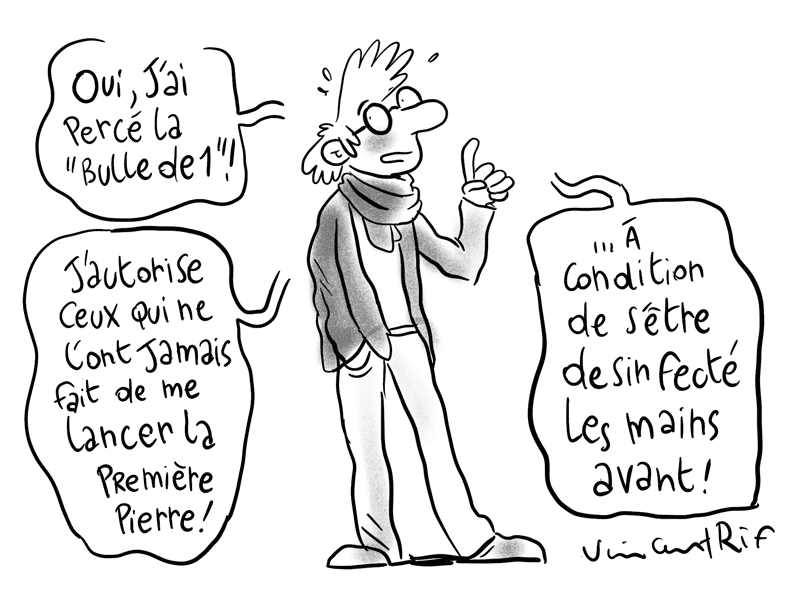 Oui, J'ai
Percé la
"Bulle de 1"!
J'autorise
ceux qui ne
l'ont Jamais
fait de me
Lancer la
Première
Pierre!
... À
condition
de s'être
desinfecté
les mains
avant!
Vincent Rif